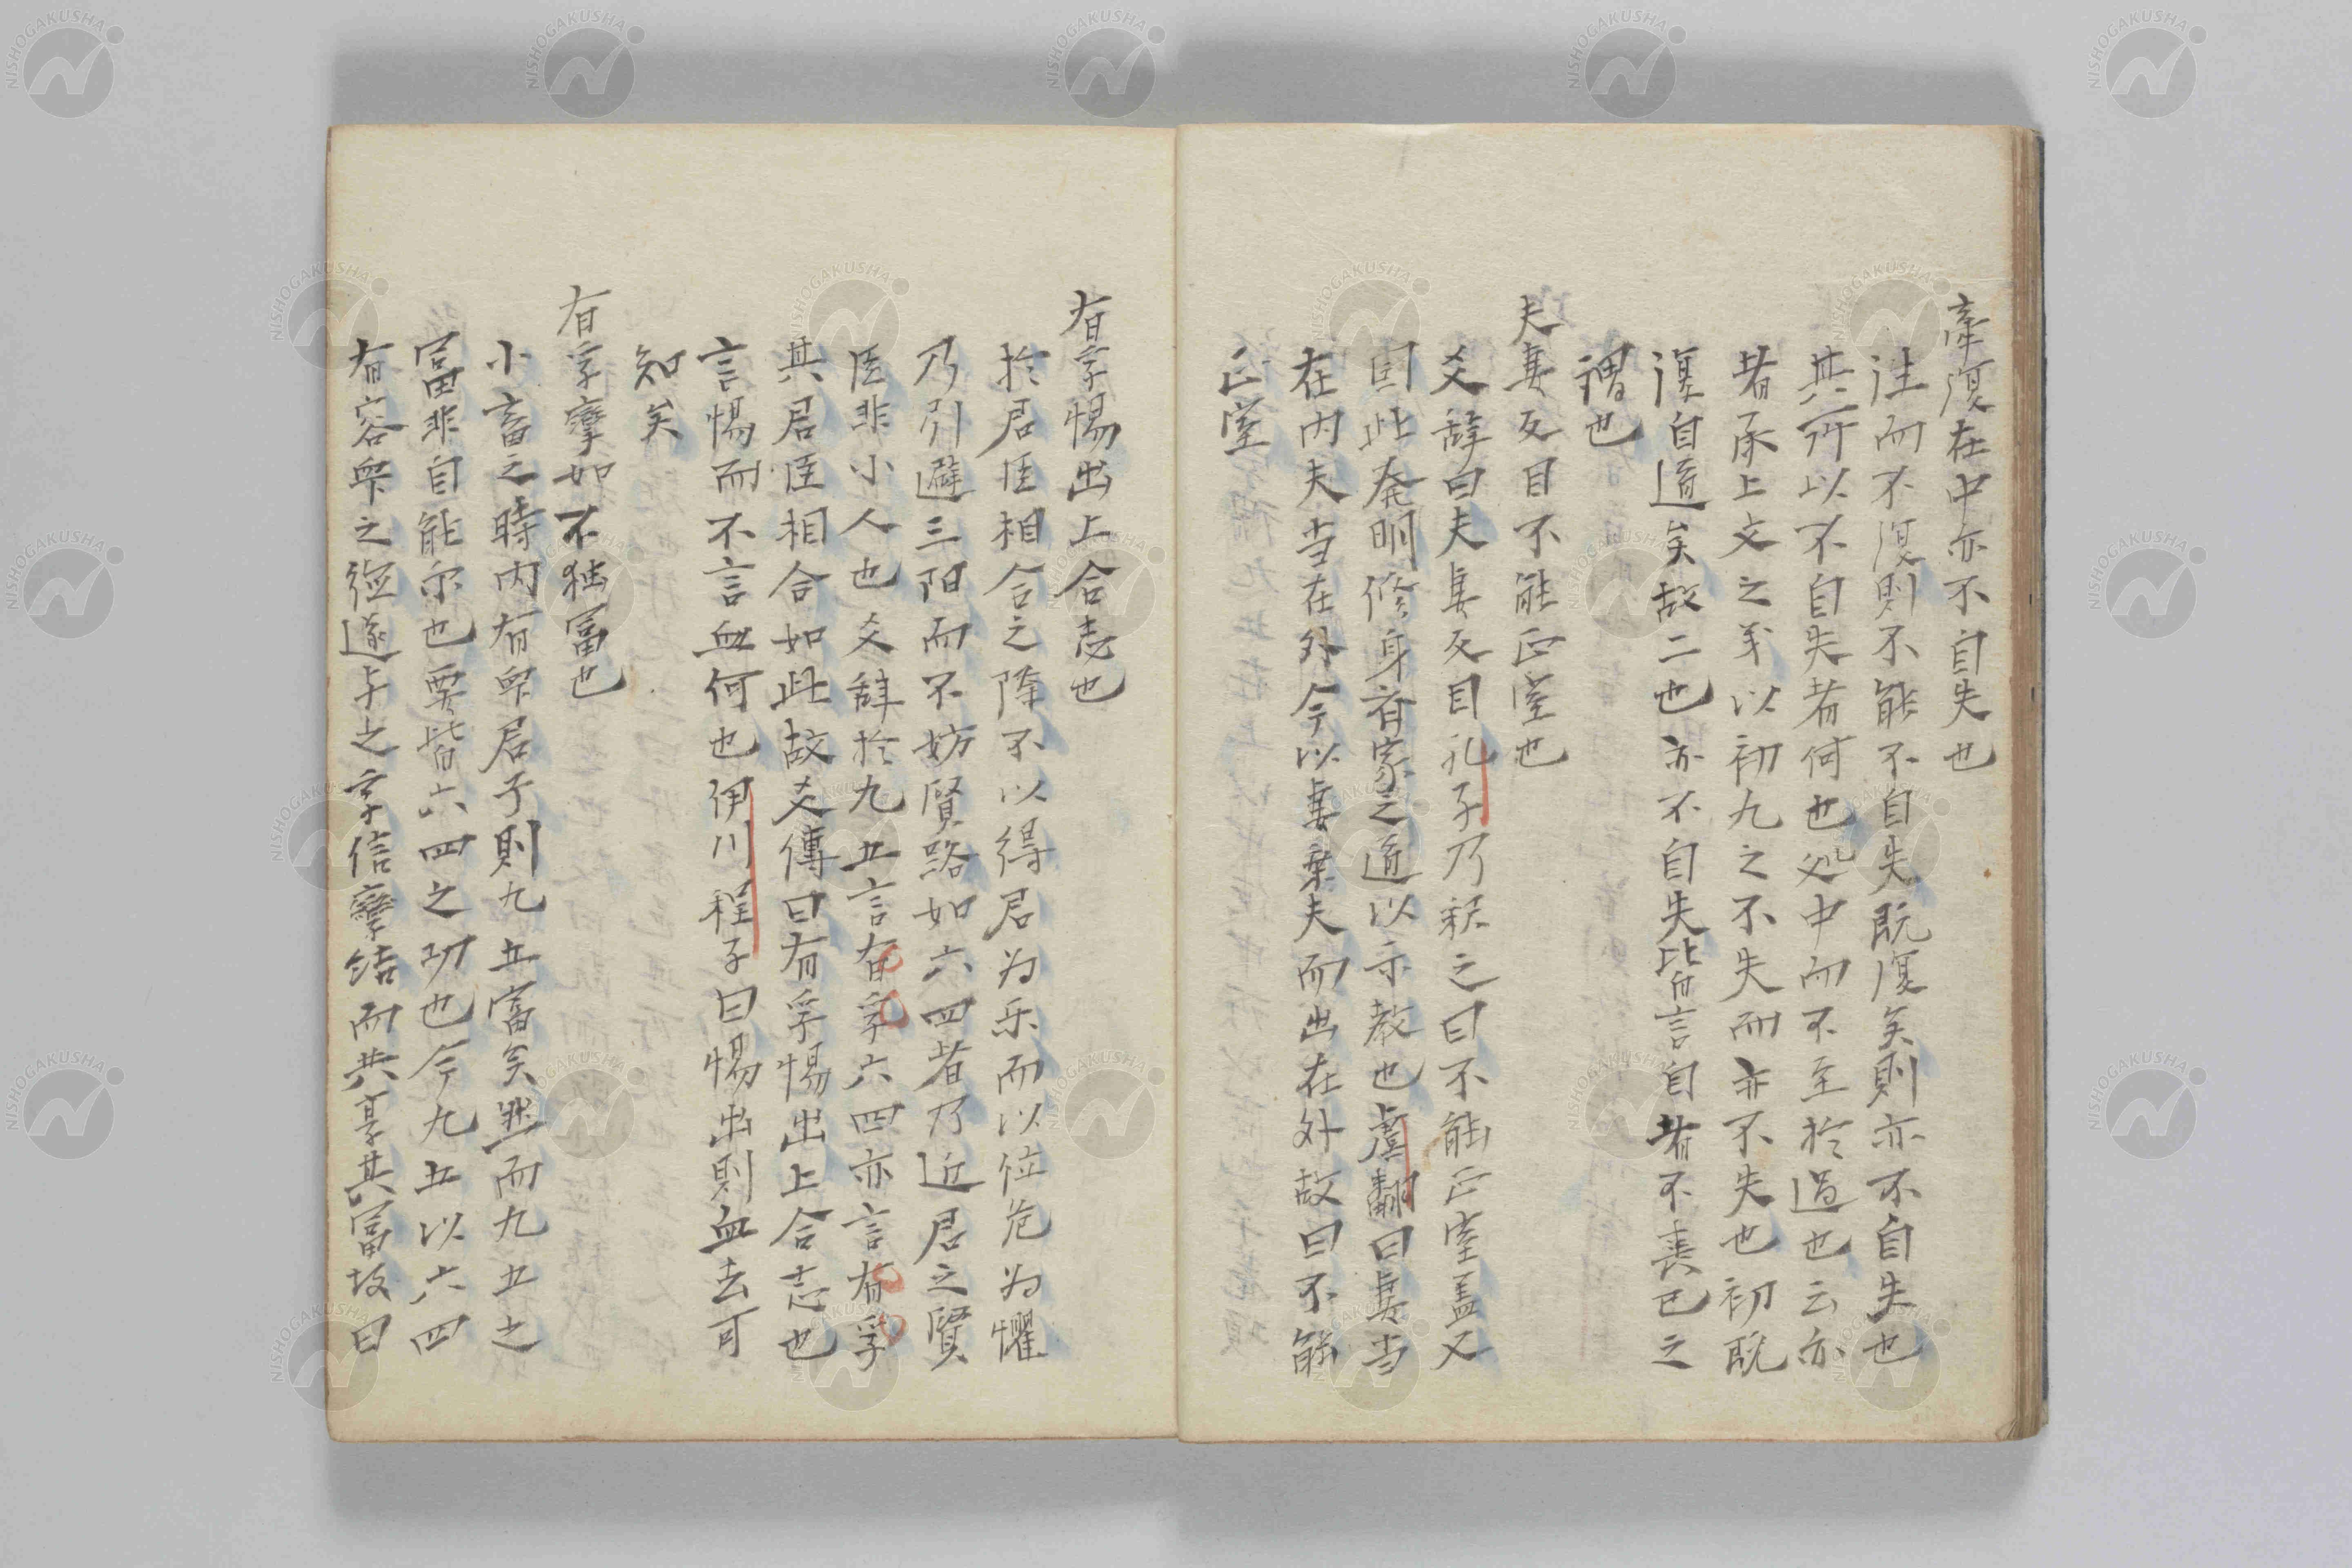 牽復在中亦不自失也
往而不復則不能不自失既復矣則亦不自失也
其所以不自失者何也処中而不至於過也云亦
者承上文之義以初九之不失而亦不失也初既
復自道矣故二也亦不自失皆言自者不喪已之
謂也
夫妻反目不能正室也
爻辞曰夫妻反目孔子乃釈之曰不能正室蓋又
因此発明修身斉家之道以示教也虞翻曰妻当
在内夫当在外今以妻乗夫而出在外故曰不能
正室
有孚惕出上合志也
於君臣相合之際不以得君为乐而以位危为懼
乃引避三阳而不妨賢路如六四者乃近君之賢
臣非小人也爻辞於九五言有孚六四亦言有孚
其君臣相合如此故爻傳曰有孚惕出上合志也
言惕而不言血何也伊川程子曰惕出則血去可
知矣
有孚攣如不独富也
小畜之時内有卑君子則九五富矣然而九五之
富非自能尔也要皆六四之功也今九五以六四
有容之遂与之孚信攣结而共享其富故曰
NISHOGAKUSHA